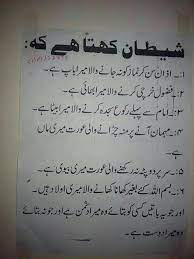 شیطان کہتا ہے کہ:
۱۔ اذان سن کر نماز کو نہ جانے والا میرا باپ ہے۔
۲۔ فضول خرچی کرنے والا میرا بھائی ہے۔
۳۔ امام سے پہلے رکوع سجدہ کرنے والا میرا بیٹا ہے۔
۴۔ مہمان آنے پر منہ چڑانے والی عورت میری ماں
ہے۔
۵۔ سر پر دوپٹہ نہ رکھنے والی عورت میری بیوی ہے۔
۶۔ بسم اللہ کئے بغیر کھانا کھانے والا میری اولاد ہیں۔
اور جو یہ باتیں کسی کو بتائے وہ میرا دشمن ہے اور جو نہ بتائے
وہ میرا دوست ہے۔